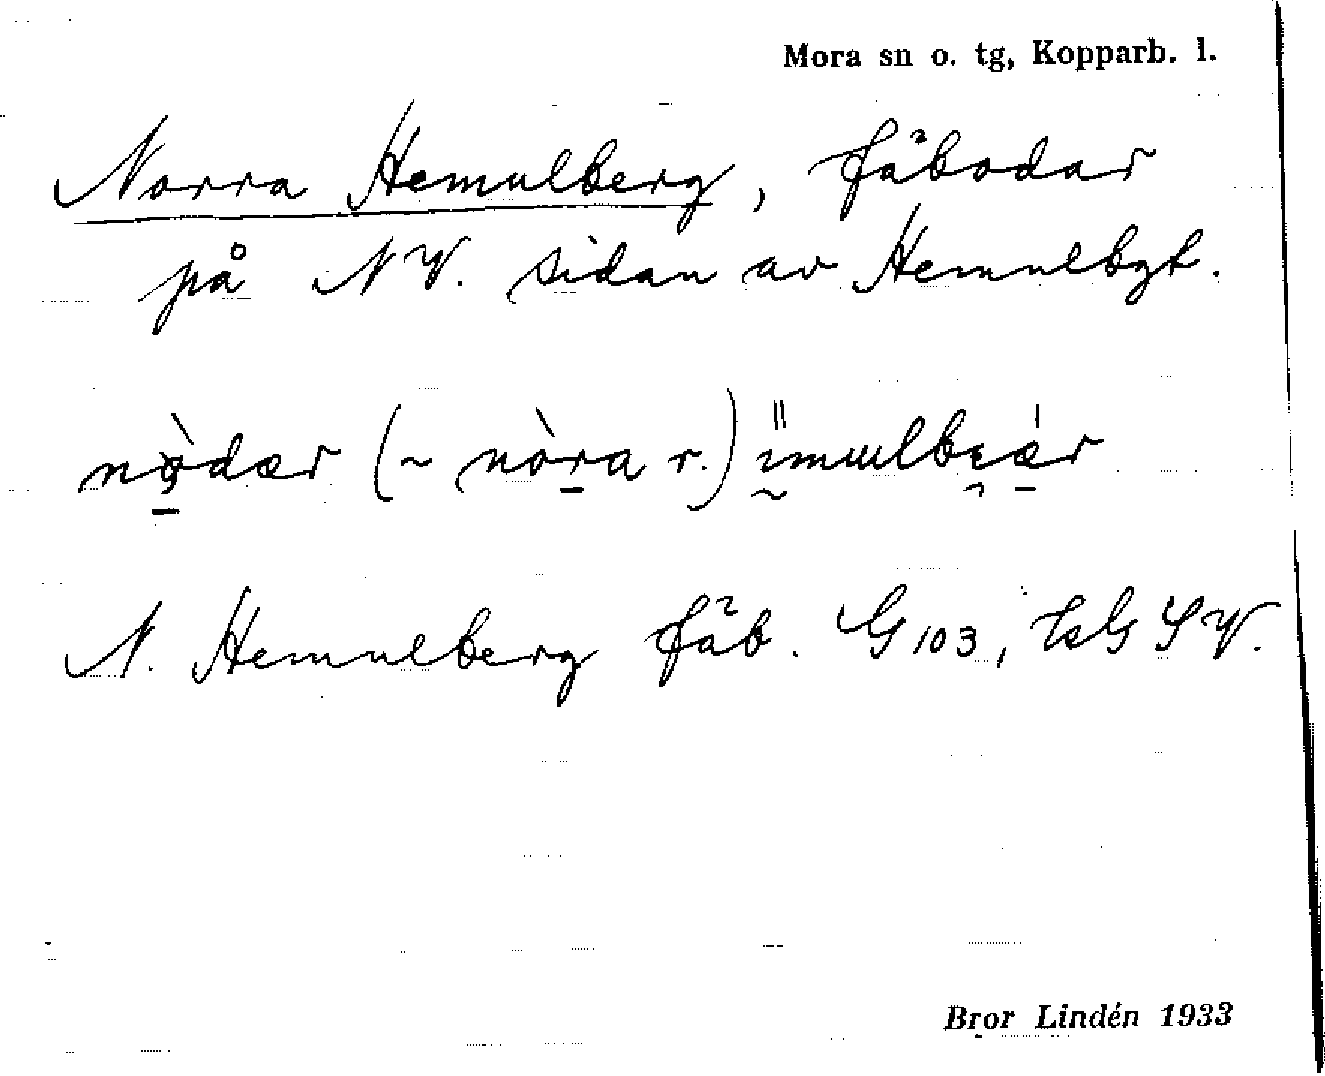 Mora sn o. tg, Kopparb. l.
Norra Hemulberg, fäbodar
på NV. sidan av Hemulbgt.
nòdær (~ nòra r.)
N. Hemulberg fäb. G 103, SV.
Bror Lindén 1933